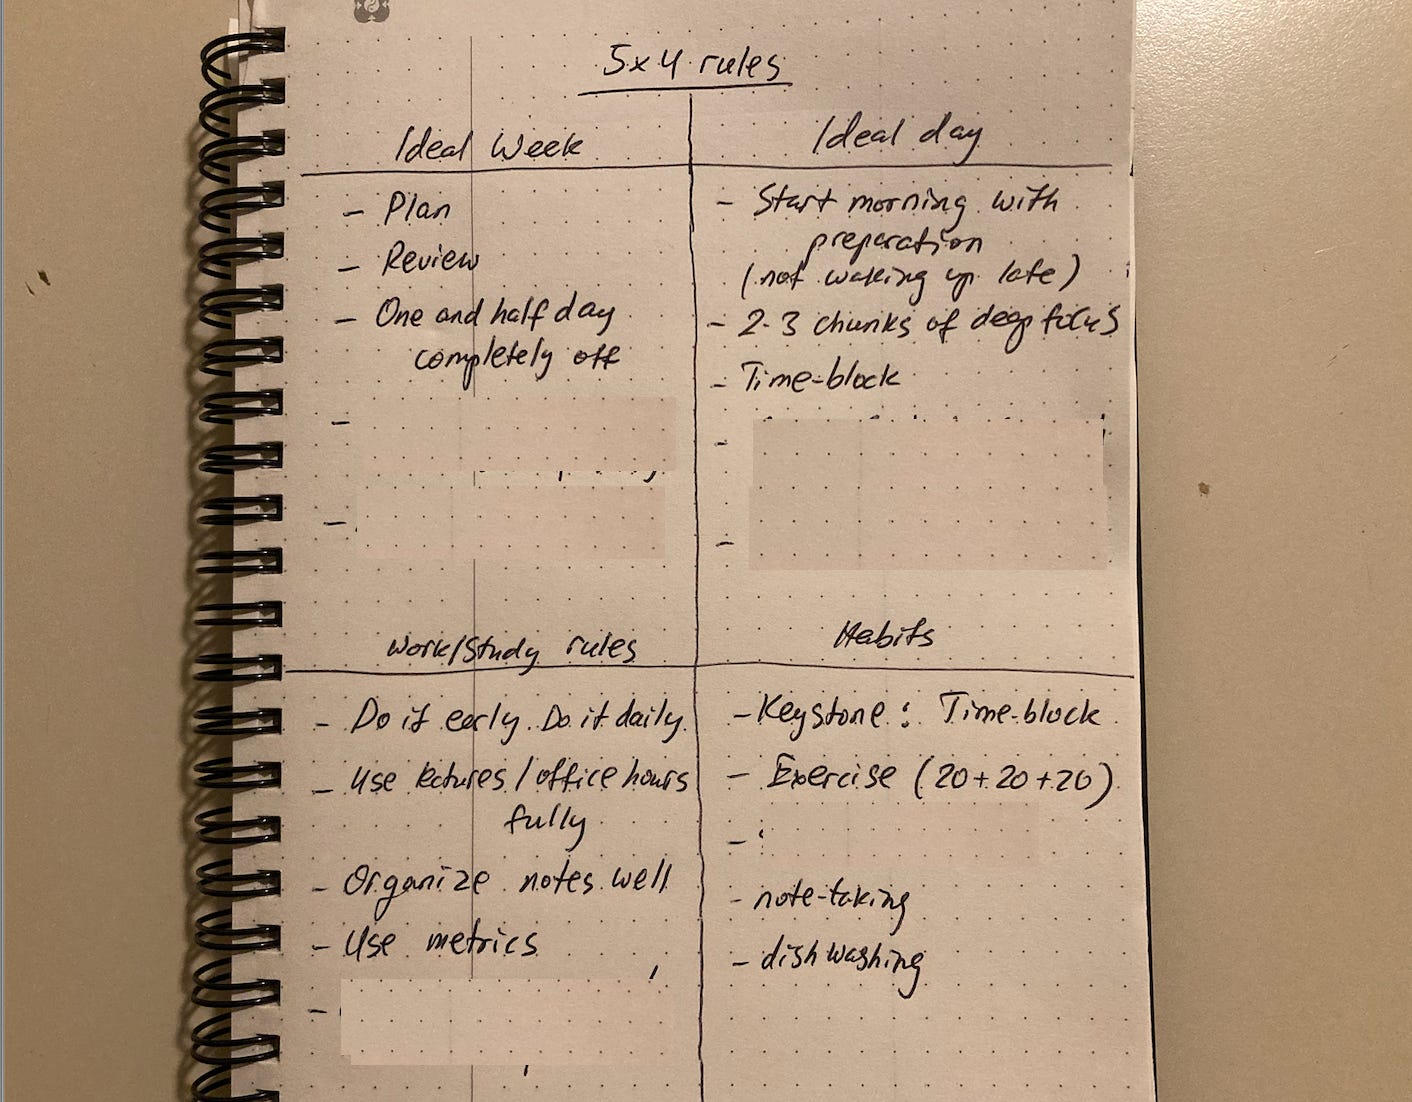 5x4 rules
Ideal Week
- Plan
- Review
- One and half day
completely off
-
-
Ideal day
- Start morning with
preparation
(not waking up late)
- 2-3 chunks of deep focus
- Time-block
-
-
Work/Study rules
- Do it early. Do it daily.
- Use lectures / office hours
fully
- Organize notes well
- Use metrics
-
Habits
- Keystone: Time-block
- Exercise (20+20+20)
-
- note-taking
- dish washing